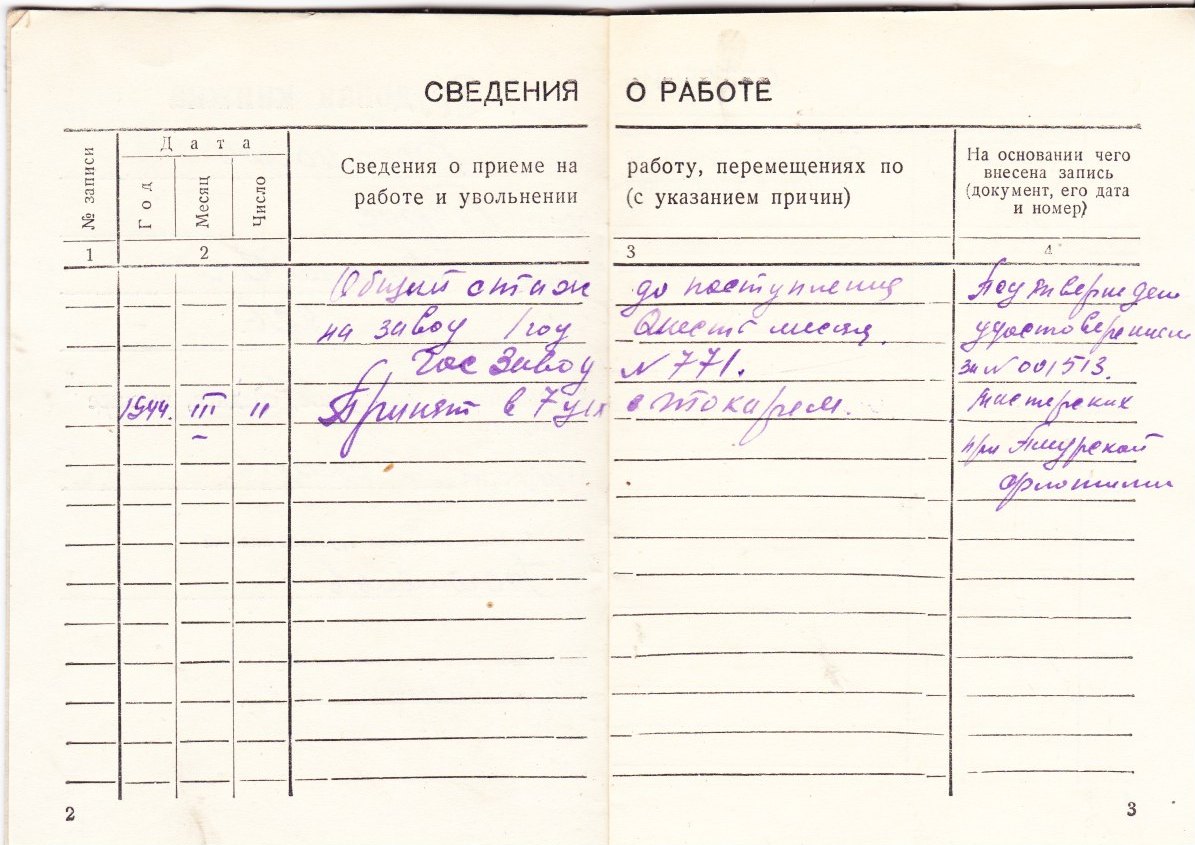 СВЕДЕНИЯ О РАБОТЕ
№ записи
Дата
Год
Месяц
Число
Сведения о приеме на работу, перемещениях по
работе и увольнении (с указанием причин)
На основании чего
внесена запись
(документ, его дата
и номер)
1 2 3 4
Общий стаж до поступления Подтвержден
на завод 1 год шесть месяц. удостоверением
Гос Завод № 771. за № 001513.
1944. III 11 Принят в 7 цех токарем. мастерских
при Амурской
флотилии
2
3